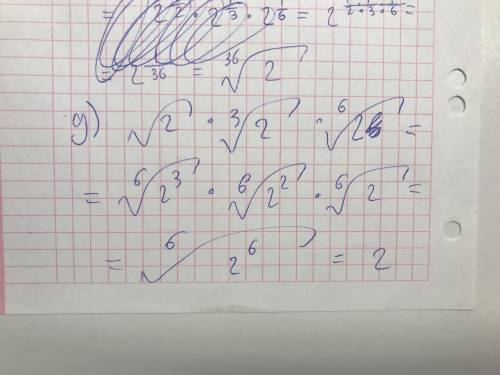 = 2^{1/2} · 2^{1/3} · 2^{1/6} = 2^{1/2·3·6} =
= 2^{1/36} = ³⁶√2
g) √2 · ³√2 · ⁶√2 =
= ⁶√2³ · ⁶√2² · ⁶√2 =
= ⁶√2⁶ = 2